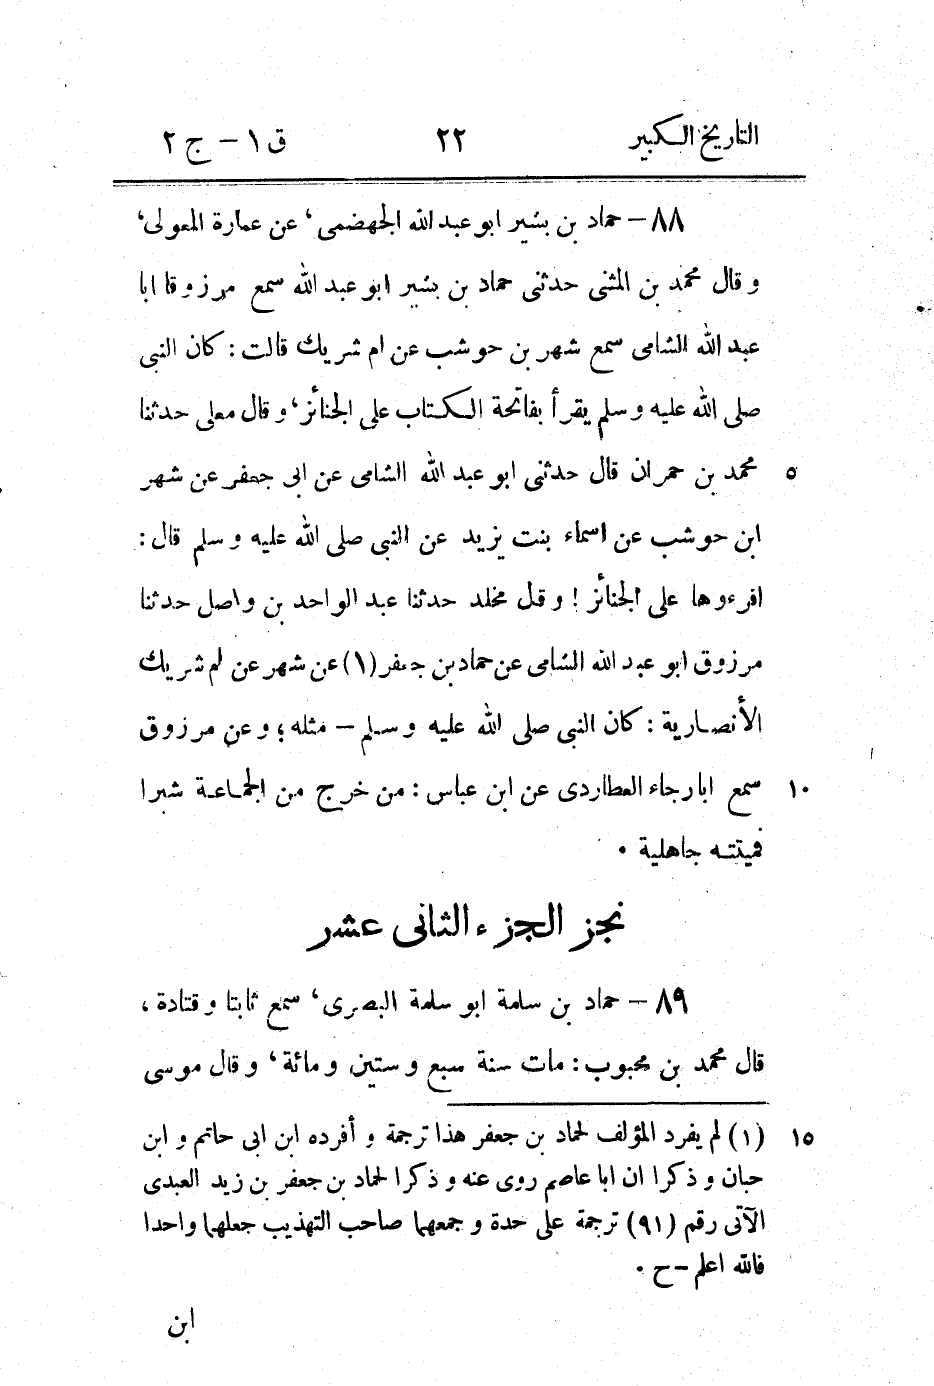 التاريخ الكبير ٢٢ ق ١ - ج ٢
٨٨ - حماد بن بشير ابو عبد الله الجهضمى، عن عمارة المعولى،
و قال محمد بن المثنى حدثنى حماد بن بشير ابو عبد الله سمع مرزوقا ابا
عبد الله الشامى سمع شهر بن حوشب عن ام شريك قالت : كان النبى
صلى الله عليه و سلم يقرأ بفاتحة الكتاب على الجنائز، و قال معلى حدثنا
٥ محمد بن حمران قال حدثنى ابو عبد الله الشامى عن ابى جعفر عن شهر
ابن حوشب عن اسماء بنت يزيد عن النبى صلى الله عليه و سلم قال :
اقرءوها على الجنائز ! و قال مخلد حدثنا عبد الواحد بن واصل حدثنا
مرزوق ابو عبد الله الشامى عن حماد بن جعفر (١) عن شهر عن ام شريك
الأنصارية : كان النبى صلى الله عليه و سلم - مثله ؛ و عن مرزوق
١٠ سمع ابا رجاء العطاردى عن ابن عباس : من خرج من الجماعة شبرا
فميتته جاهلية .
نجز الجزء الثانى عشر
٨٩ - حماد بن سلمة ابو سلمة البصرى، سمع ثابتا و قتادة ،
قال محمد بن محبوب : مات سنة سبع و ستين و مائة، و قال موسى
١٥ (١) لم يفرد المؤلف لحماد بن جعفر هذا ترجمة و أفرده ابن ابى حاتم و ابن
حبان و ذكرا ان ابا عاصم روى عنه و ذكرا لحماد بن جعفر بن زيد العبدى
الآتى رقم (٩١) ترجمة على حدة و جمعهما صاحب التهذيب جعلهما واحدا
فالله اعلم - ح .
ابن